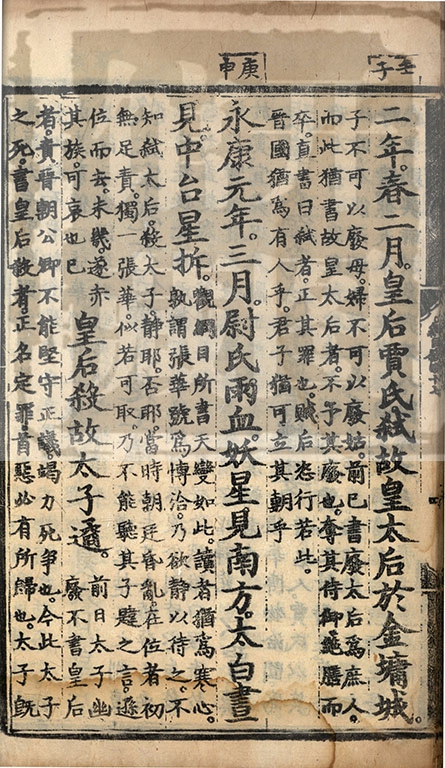 壬子
二年。春二月。皇后賈氏弒故皇太后於金墉城。
子不可以廢母。婦不可以廢姑。前已書廢太后爲庶人。
而此猶書故皇太后者。不予其廢也。奪其侍御。絕膳而
卒。直書曰弒者。正其罪也。賊后恣行若此。
晉國猶爲有人乎。君子猶可立其朝乎
庚申
永康元年。三月。尉氏雨血。妖星見南方。太白晝
見。中台星拆。
觀綱目所書天變如此。讀者猶爲寒心。
孰謂張華號爲博洽。乃欲靜以待之。不
知弒太后。殺太子。靜耶。否耶。當時朝廷昏亂。在位者初
無足責。獨一張華。似若可取。乃不能聽其子韙之言。遜
位而去。未幾遂赤
其族。可哀也已
皇后殺故太子遹。
前日太子幽
廢不書皇后
者。責晉朝公卿不能堅守正義。竭力死爭也。今此太子
之死。書皇后殺者。正名定罪。首惡必有所歸也。太子旣